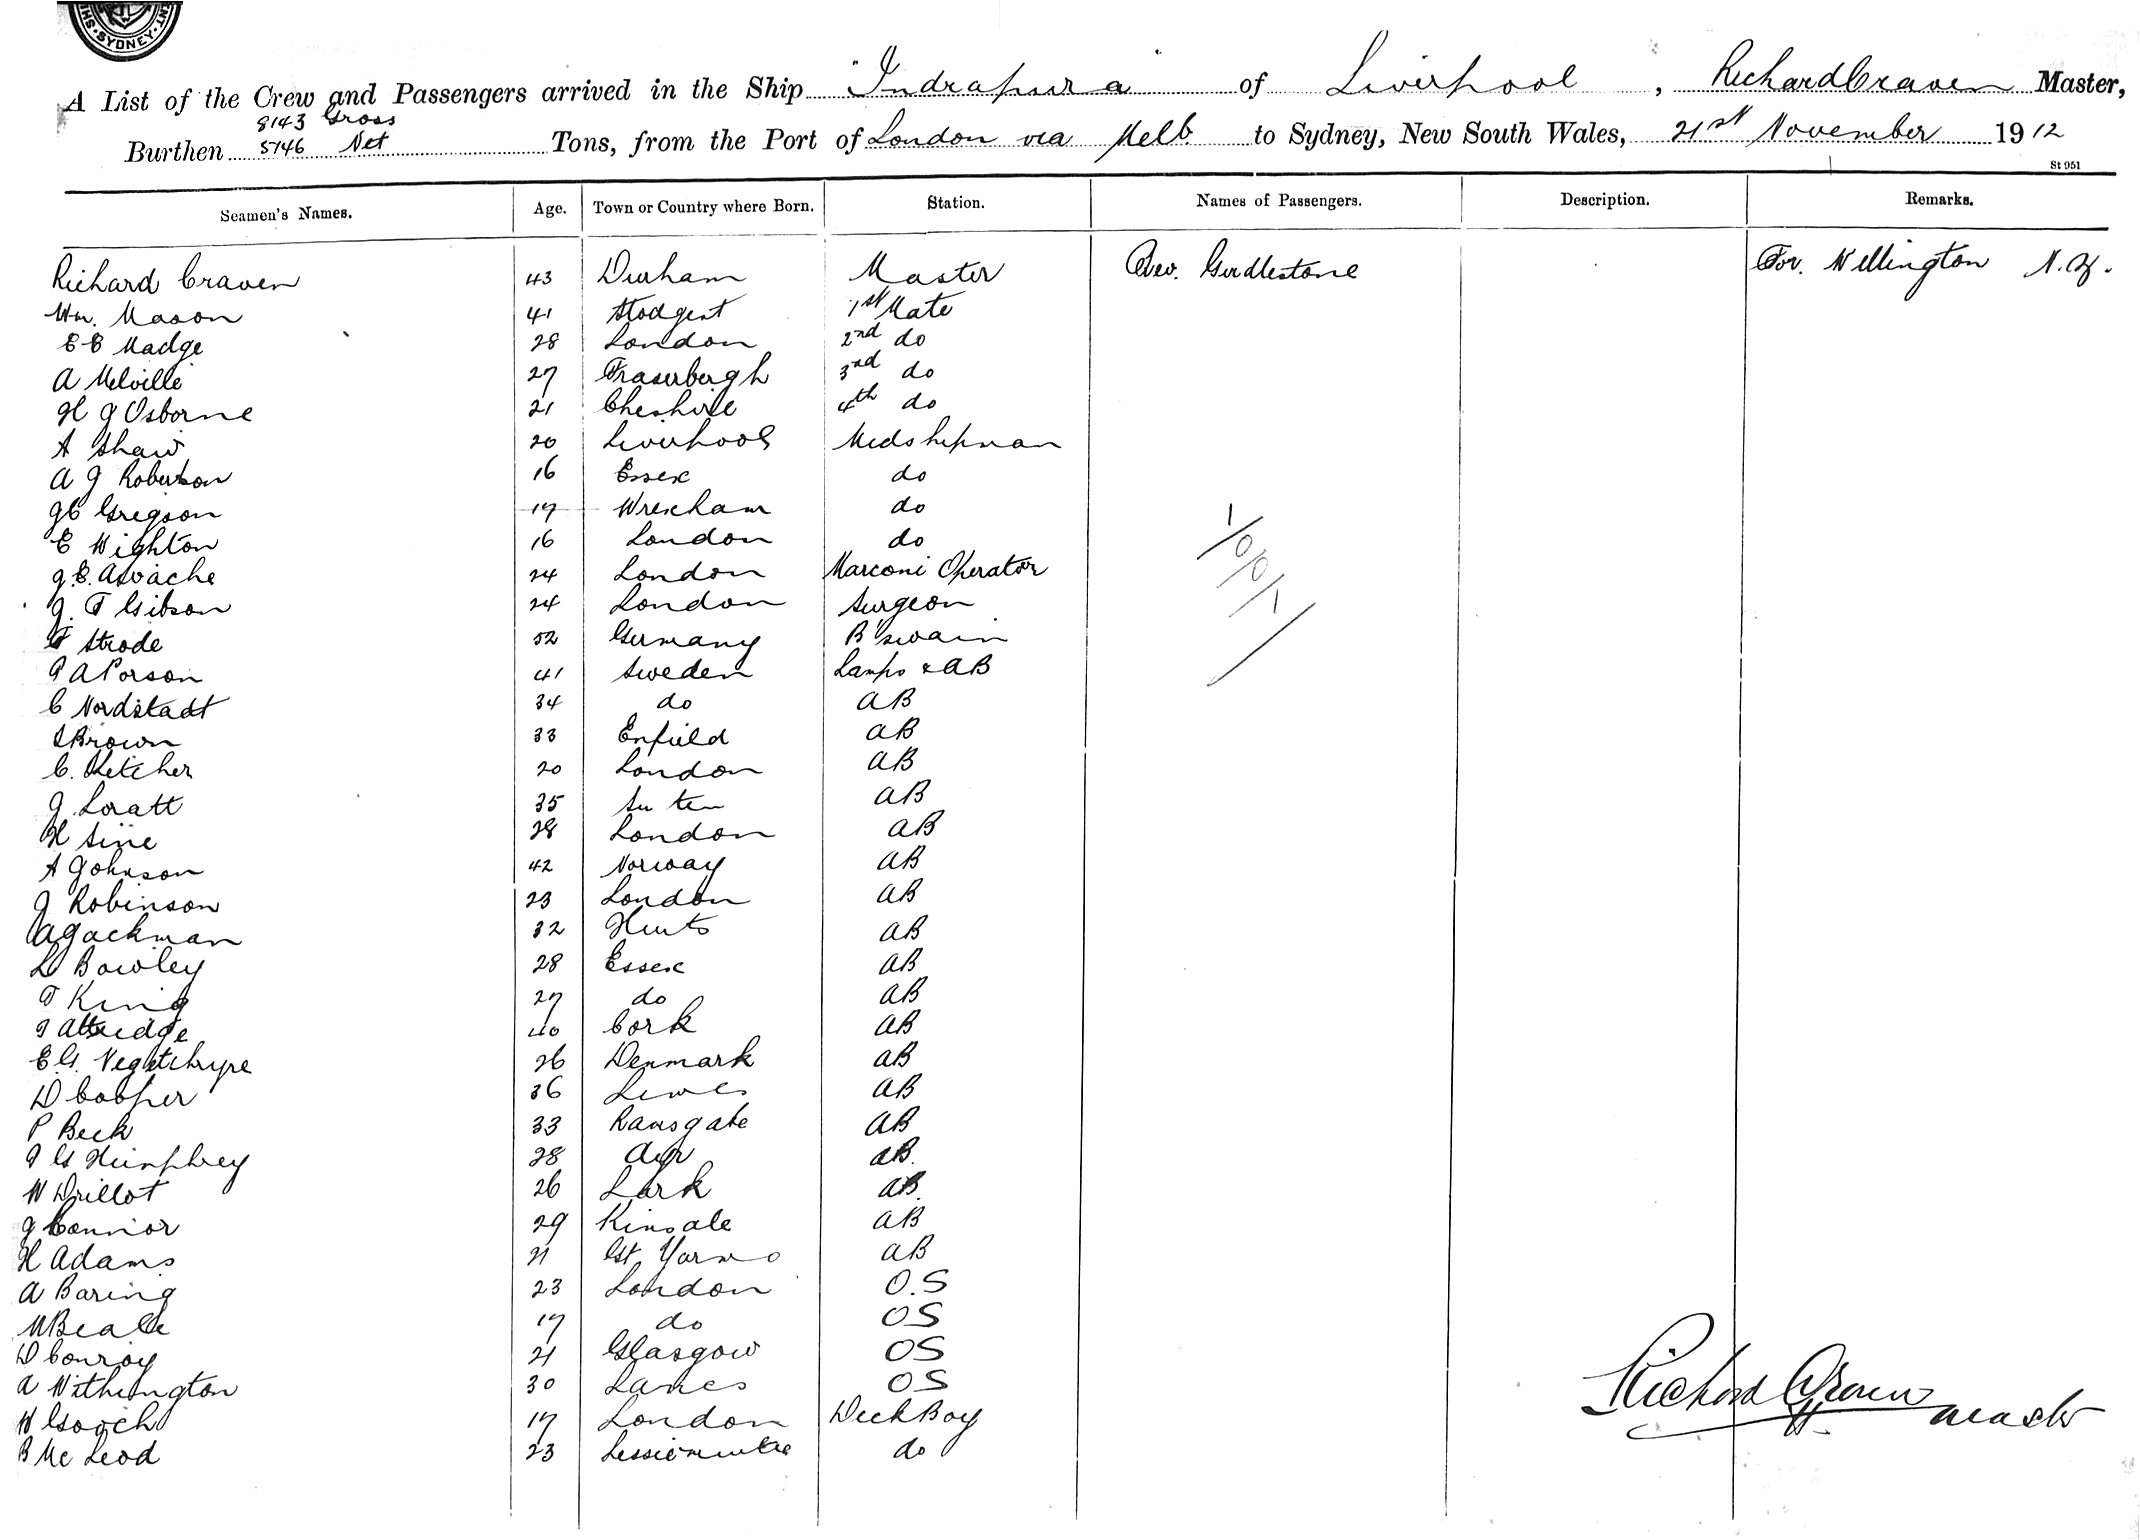 SYDNEY
A List of the Crew and Passengers arrived in the Ship "Indrapura" of Liverpool, Richard Craven Master,
8143 Gross
Burthen 5146 Net Tons, from the Port of London via Melb. to Sydney, New South Wales, 21st November 1912
St 951
Seamen's Names. Age. Town or Country where Born. Station. Names of Passengers. Description. Remarks.
Richard Craven 43 Durham Master Rev. Girdlestone For. Wellington N.Z.
Wm. Mason 41 1st Mate
E E Madge 28 London 2nd do
A Melville 27 Fraserbergh 3rd do
H J Osborne 21 Cheshire 4th do
A Shaw 20 Liverpool Midshipman
A J Robertson 16 Essex do
J C Gregson 17 Wrexham do
E Wighton 16 London do
J.E. Asvache 24 London Marconi Operator
J. F Gibson 24 London Surgeon
F Strode 52 Germany B'swain
P A Porson 41 Sweden Lamps & AB
C Nordstadt 34 do AB
S Brown 33 Enfield AB
C. Ketcher 20 London AB
J Loratt 35 AB
H Sine 28 London AB
A Johnson 42 Norway AB
J Robinson 23 London AB
A Jackman 32 AB
L Bowley 28 Essex AB
T King 27 do AB
T Attridge 40 Cork AB
E.G. 26 Denmark AB
D Cooper 36 Lewes AB
P Beck 33 Ramsgate AB
T G Humphrey 28 Ayr AB.
W Drillot 26 AB.
J Connor 29 Kinsale AB
H Adams 21 Gt Yarmo AB
A Baring 23 London O.S
W Beale 17 do OS
D Conroy 21 Glasgow OS
A Withington 30 Lancs OS
H Gooch 17 London Deck Boy
B Mc Leod 23 do
Richard Craven
Master